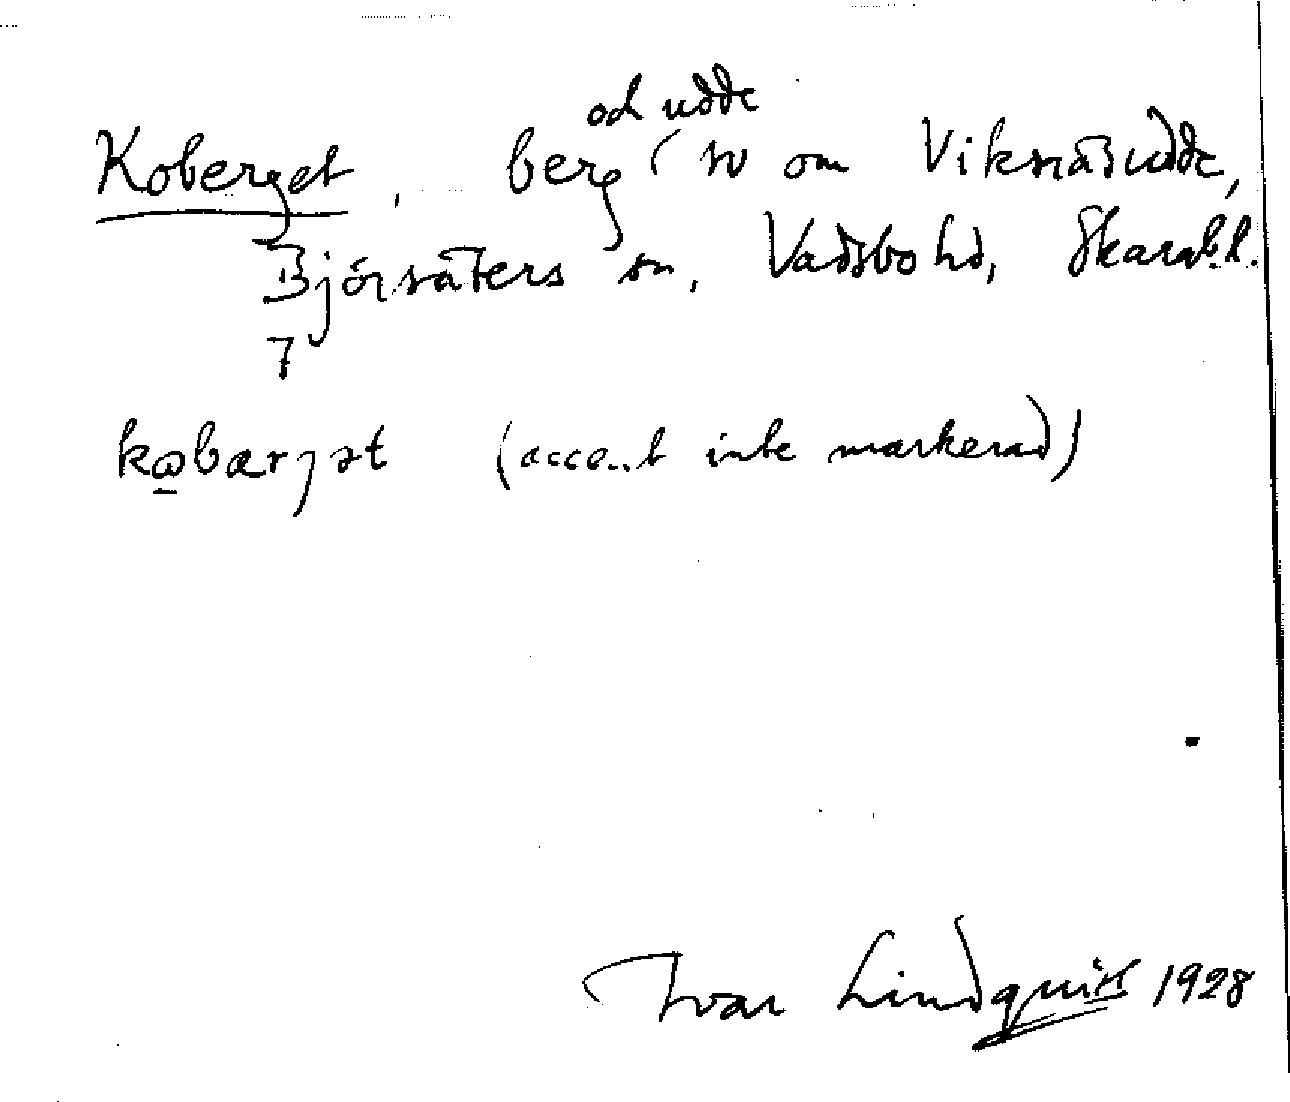 Koberget, berg och udde sv om Viksnäsudde,
Björsäters sn, Vadsbo hd, Skarab.l.
7
kωbærjət (accent inte markerad)
Ivar Lindquist 1928